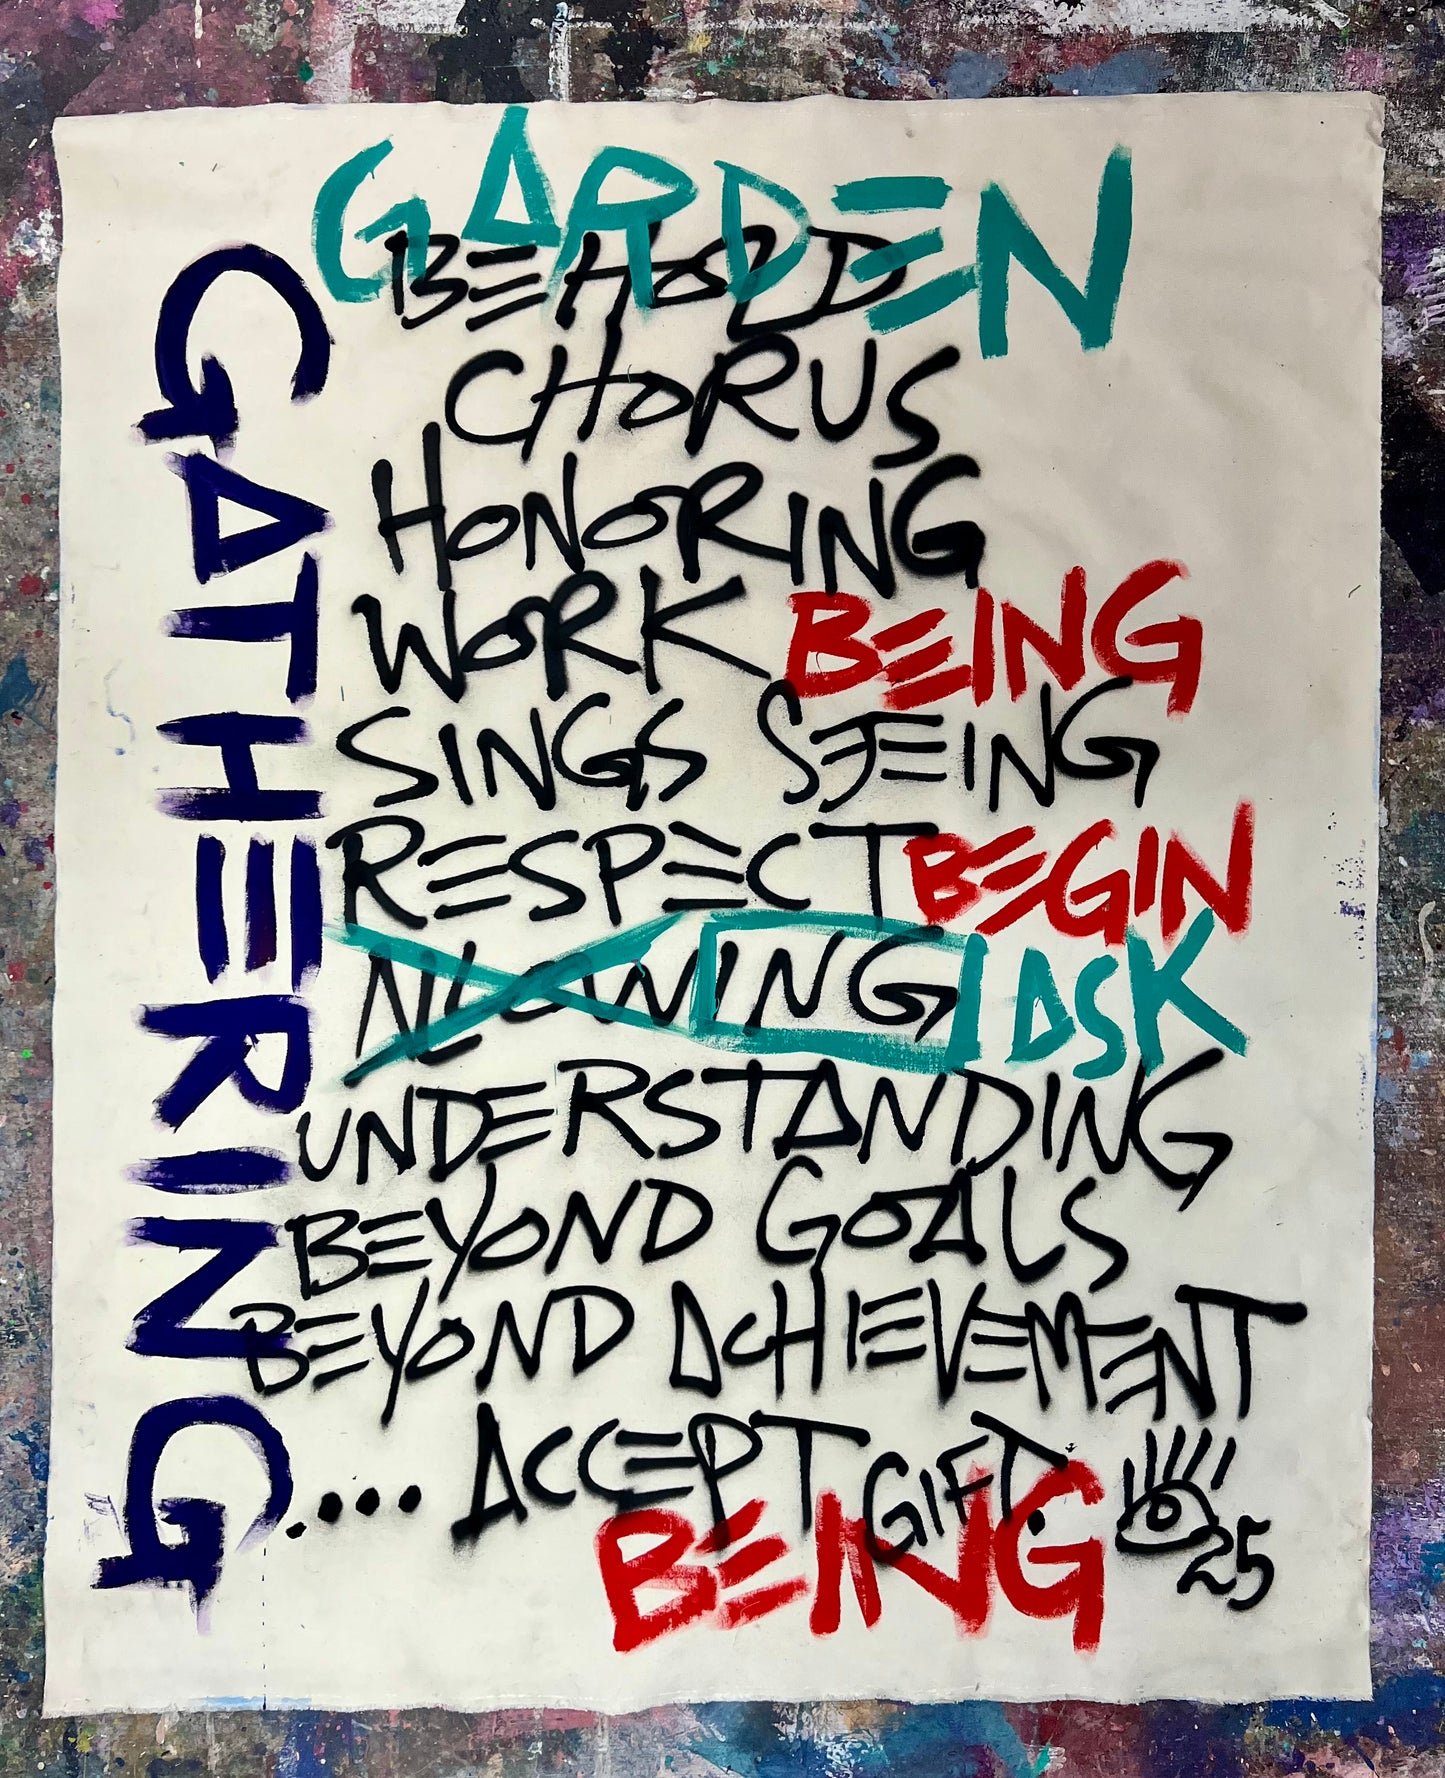 GARDEN
GATHERING
BEHOLD
CHORUS
HONORING
WORK BEING
SINGS SEEING
RESPECT BEGIN
ALLOWING I ASK
UNDERSTANDING
BEYOND GOALS
BEYOND ACHIEVEMENT
... ACCEPT GIFT.
BEING
25